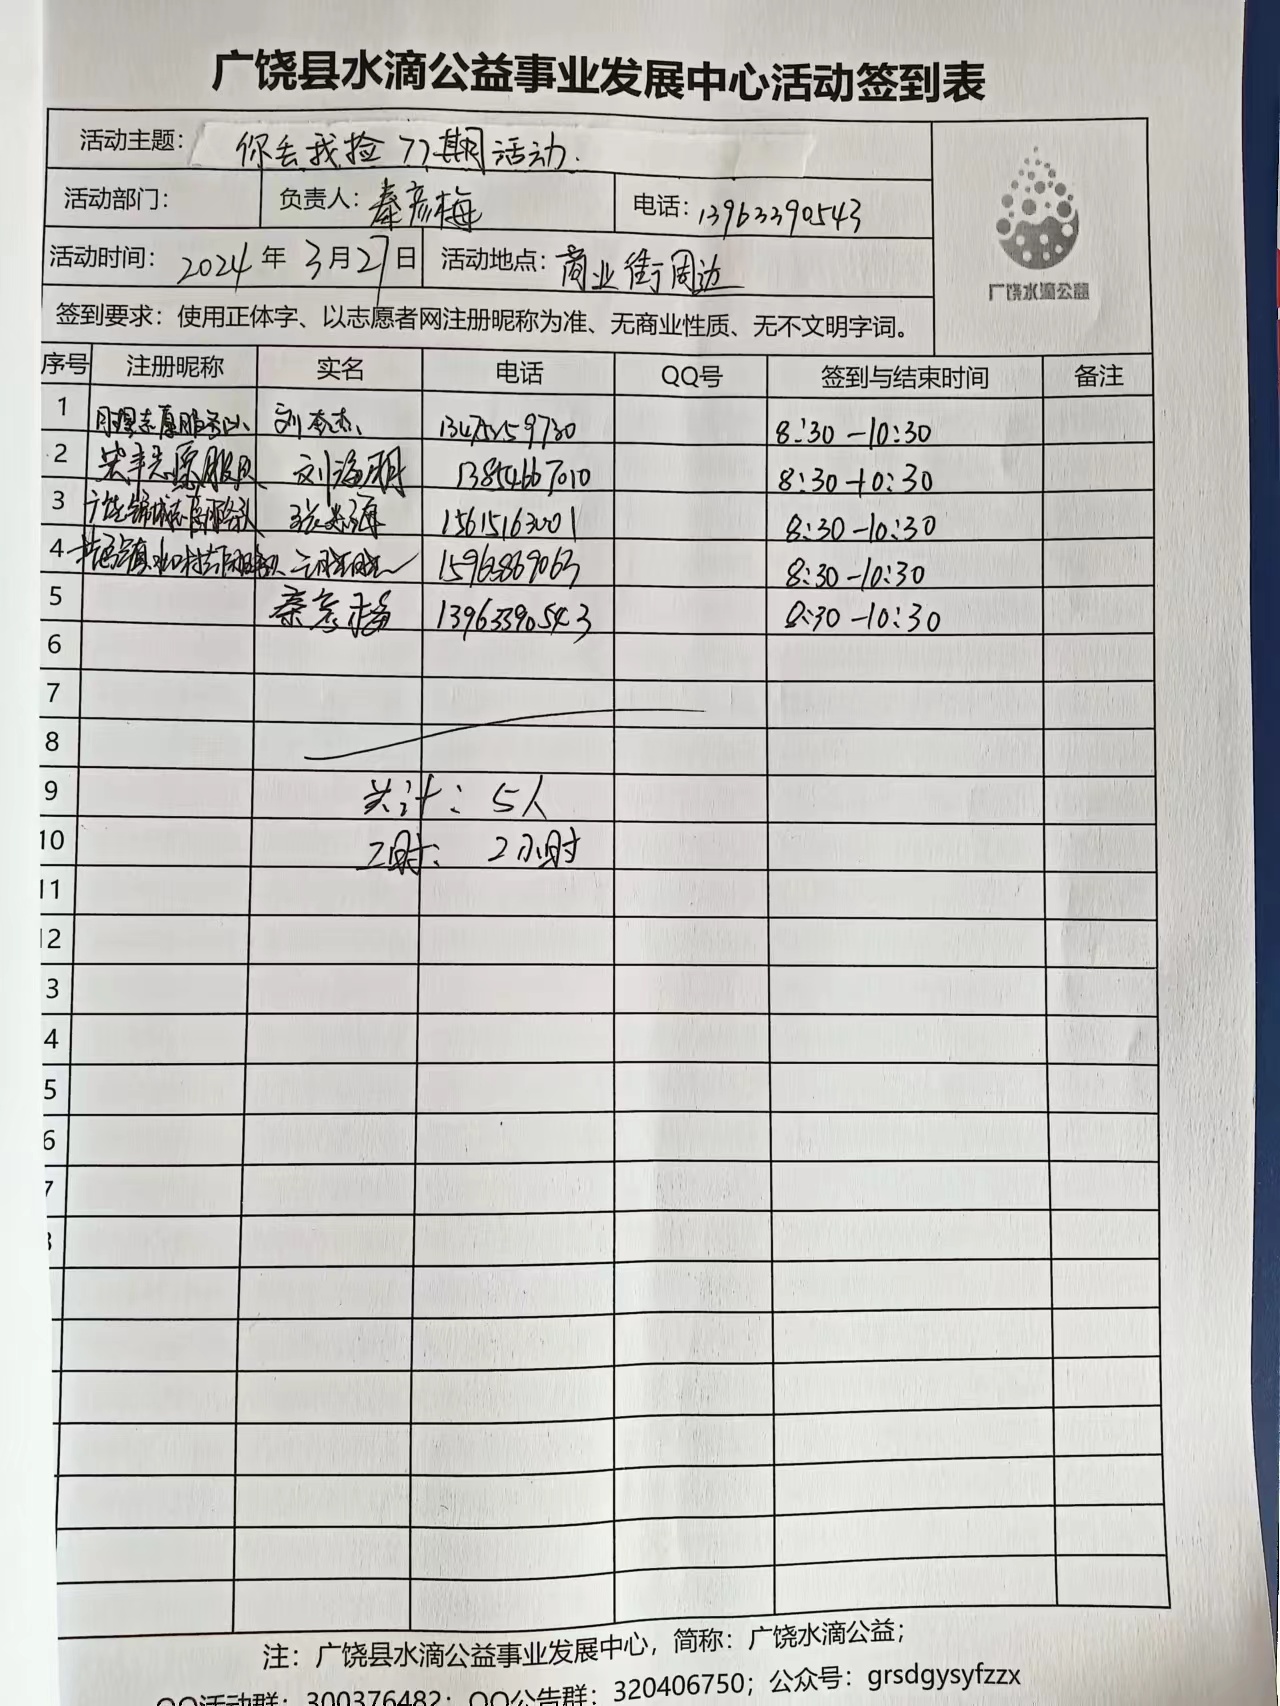 广饶县水滴公益事业发展中心活动签到表
活动主题: 你丢我捡77期活动.
活动部门: 负责人: 秦彦梅 电话: 13963390543
活动时间: 2024年3月27日 活动地点: 商业街周边
广饶水滴公益
签到要求: 使用正体字、以志愿者网注册昵称为准、无商业性质、无不文明字词。
序号 注册昵称 实名 电话 QQ号 签到与结束时间 备注
1 8:30-10:30
2 志愿服队 刘海朋 13854667010 8:30-10:30
3 15615163001 8:30-10:30
4 15963869063 8:30-10:30
5 秦彦梅 13963390543 8:30-10:30
6
7
8
9 共计: 5人
10 工时: 2小时
11
12
3
4
5
6
7
注: 广饶县水滴公益事业发展中心, 简称: 广饶水滴公益;
QQ活动群: 300376482; QQ公告群: 320406750; 公众号: grsdgysyfzzx